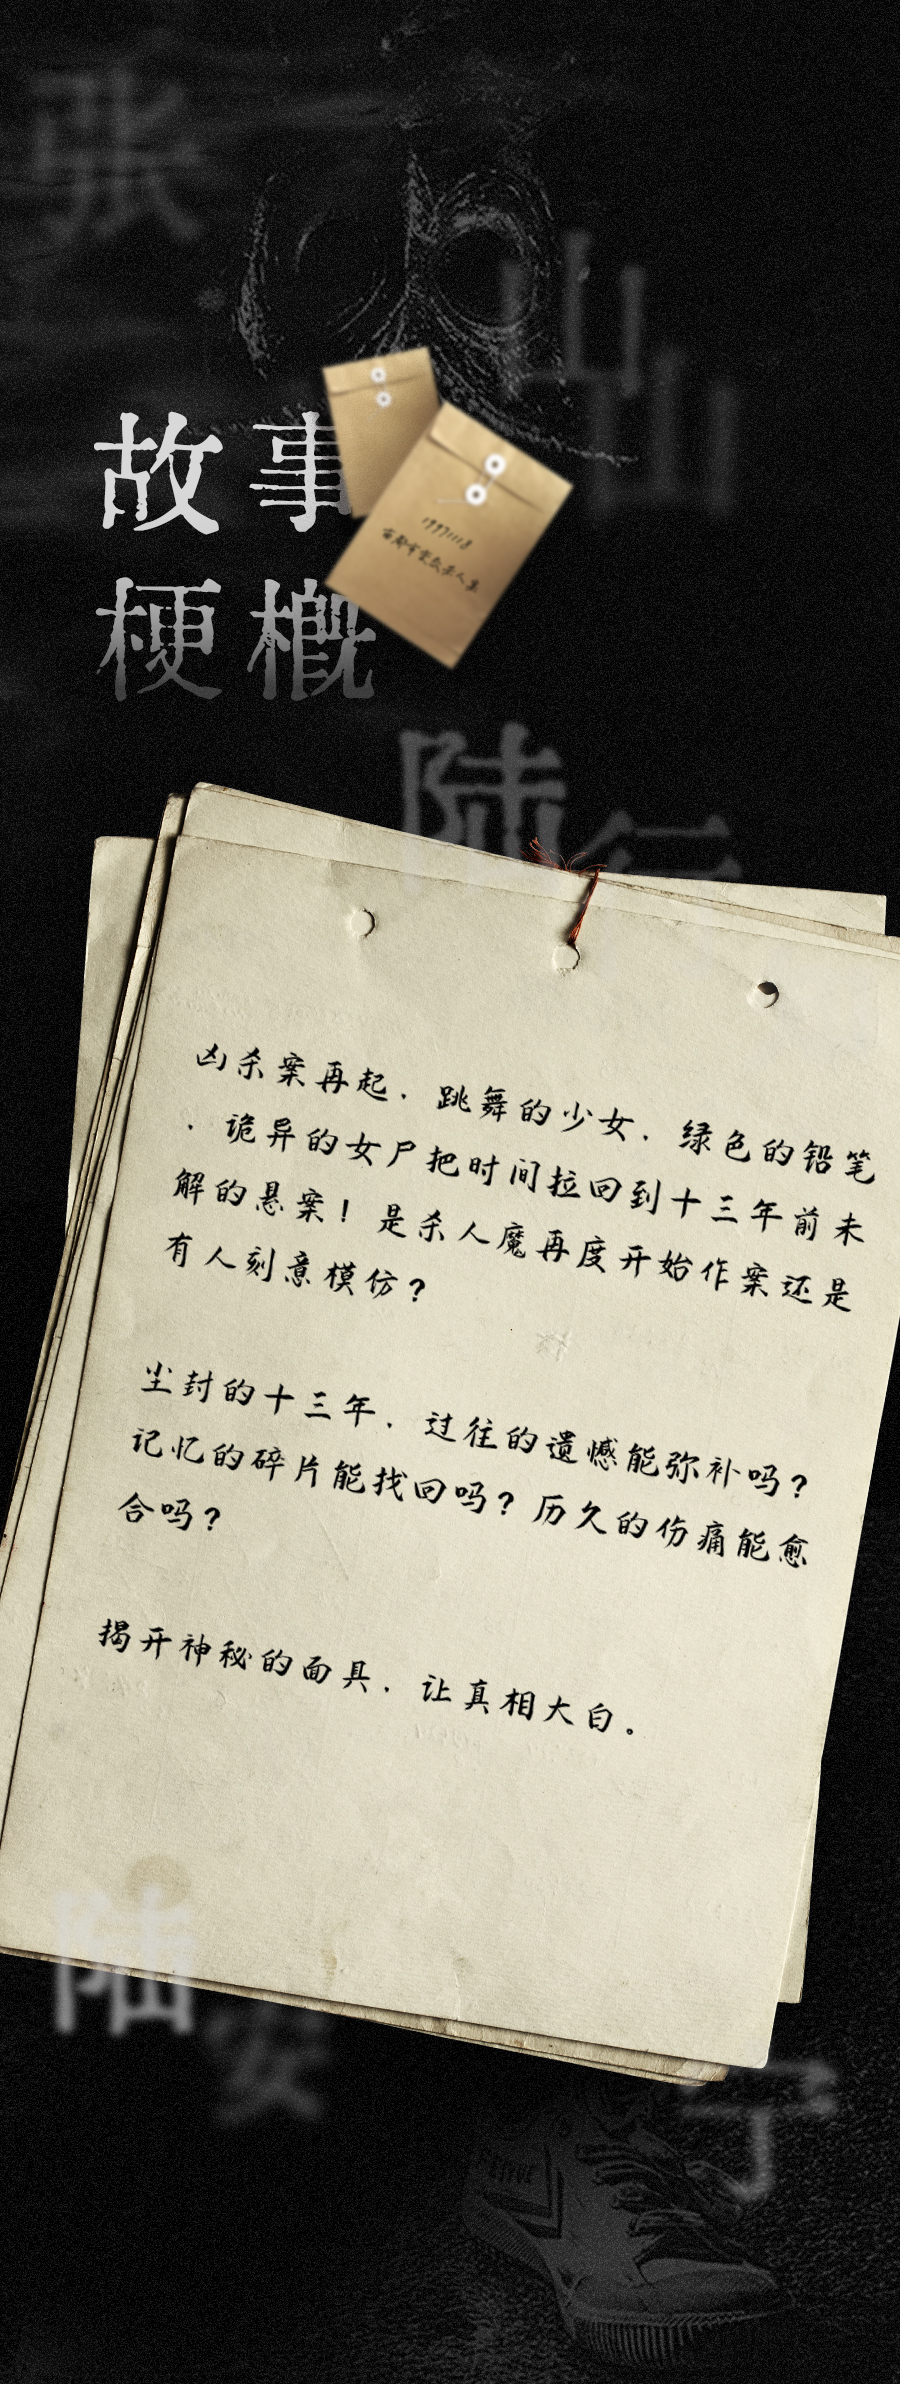 张
山
山
故事
梗概
19971118
陆行
凶杀案再起．跳舞的少女．绿色的铅笔
．诡异的女尸把时间拉回到十三年前未
解的悬案！是杀人魔再度开始作案还是
有人刻意模仿？
尘封的十三年．过往的遗憾能弥补吗？
记忆的碎片能找回吗？历久的伤痛能愈
合吗？
揭开神秘的面具．让真相大白。
陆
安
宁